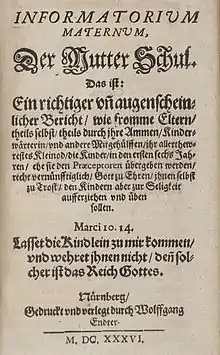 INFORMATORIUM
MATERNUM,
Der Mutter Schul.
Das ist:
Ein richtiger uñ augenschein-
licher Bericht/ wie fromme Eltern/
theils selbst/ theils durch jhre Ammen/ Kinder-
wärterin/ und andere Mitgehülffen/ jhr allerthew-
restes Kleinod/ die Kinder/ in den ersten sechs Jah-
ren/ ehe sie den Præceptoren übergeben werden/
recht vernünfftiglich/ Gott zu Ehren/ jhnen selbst
zu Trost/ den Kindern aber zur Seligkeit
aufferziehen und üben
sollen.
Marci 10. 14.
Lasset die Kindlein zu mir kommen/
und wehret jhnen nicht/ deñ sol-
cher ist das Reich Gottes.
Nürnberg/
Gedruckt und verlegt durch Wolffgang
Endter.
M, DC, XXXVI.